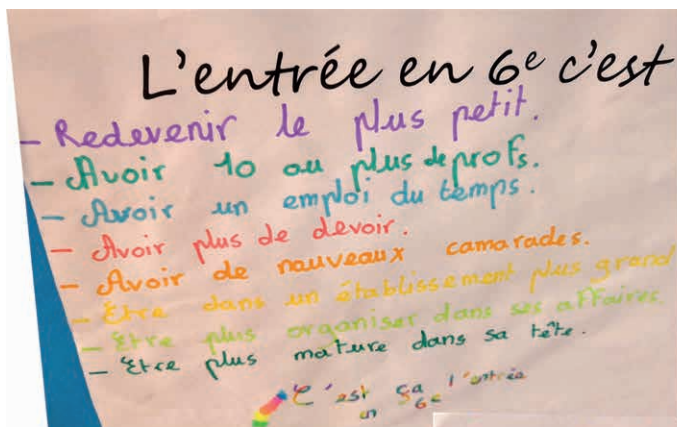 L'entrée en 6e c'est
- Redevenir le plus petit.
- Avoir 10 ou plus de profs.
- Avoir un emploi du temps.
- Avoir plus de devoir.
- Avoir de nauveaux camarades.
- Etre dans un établissement plus grand
- Etre plus organiser dans ses affaires.
- Etre plus mature dans sa tête.
C'est sa l'entrée
en 6e